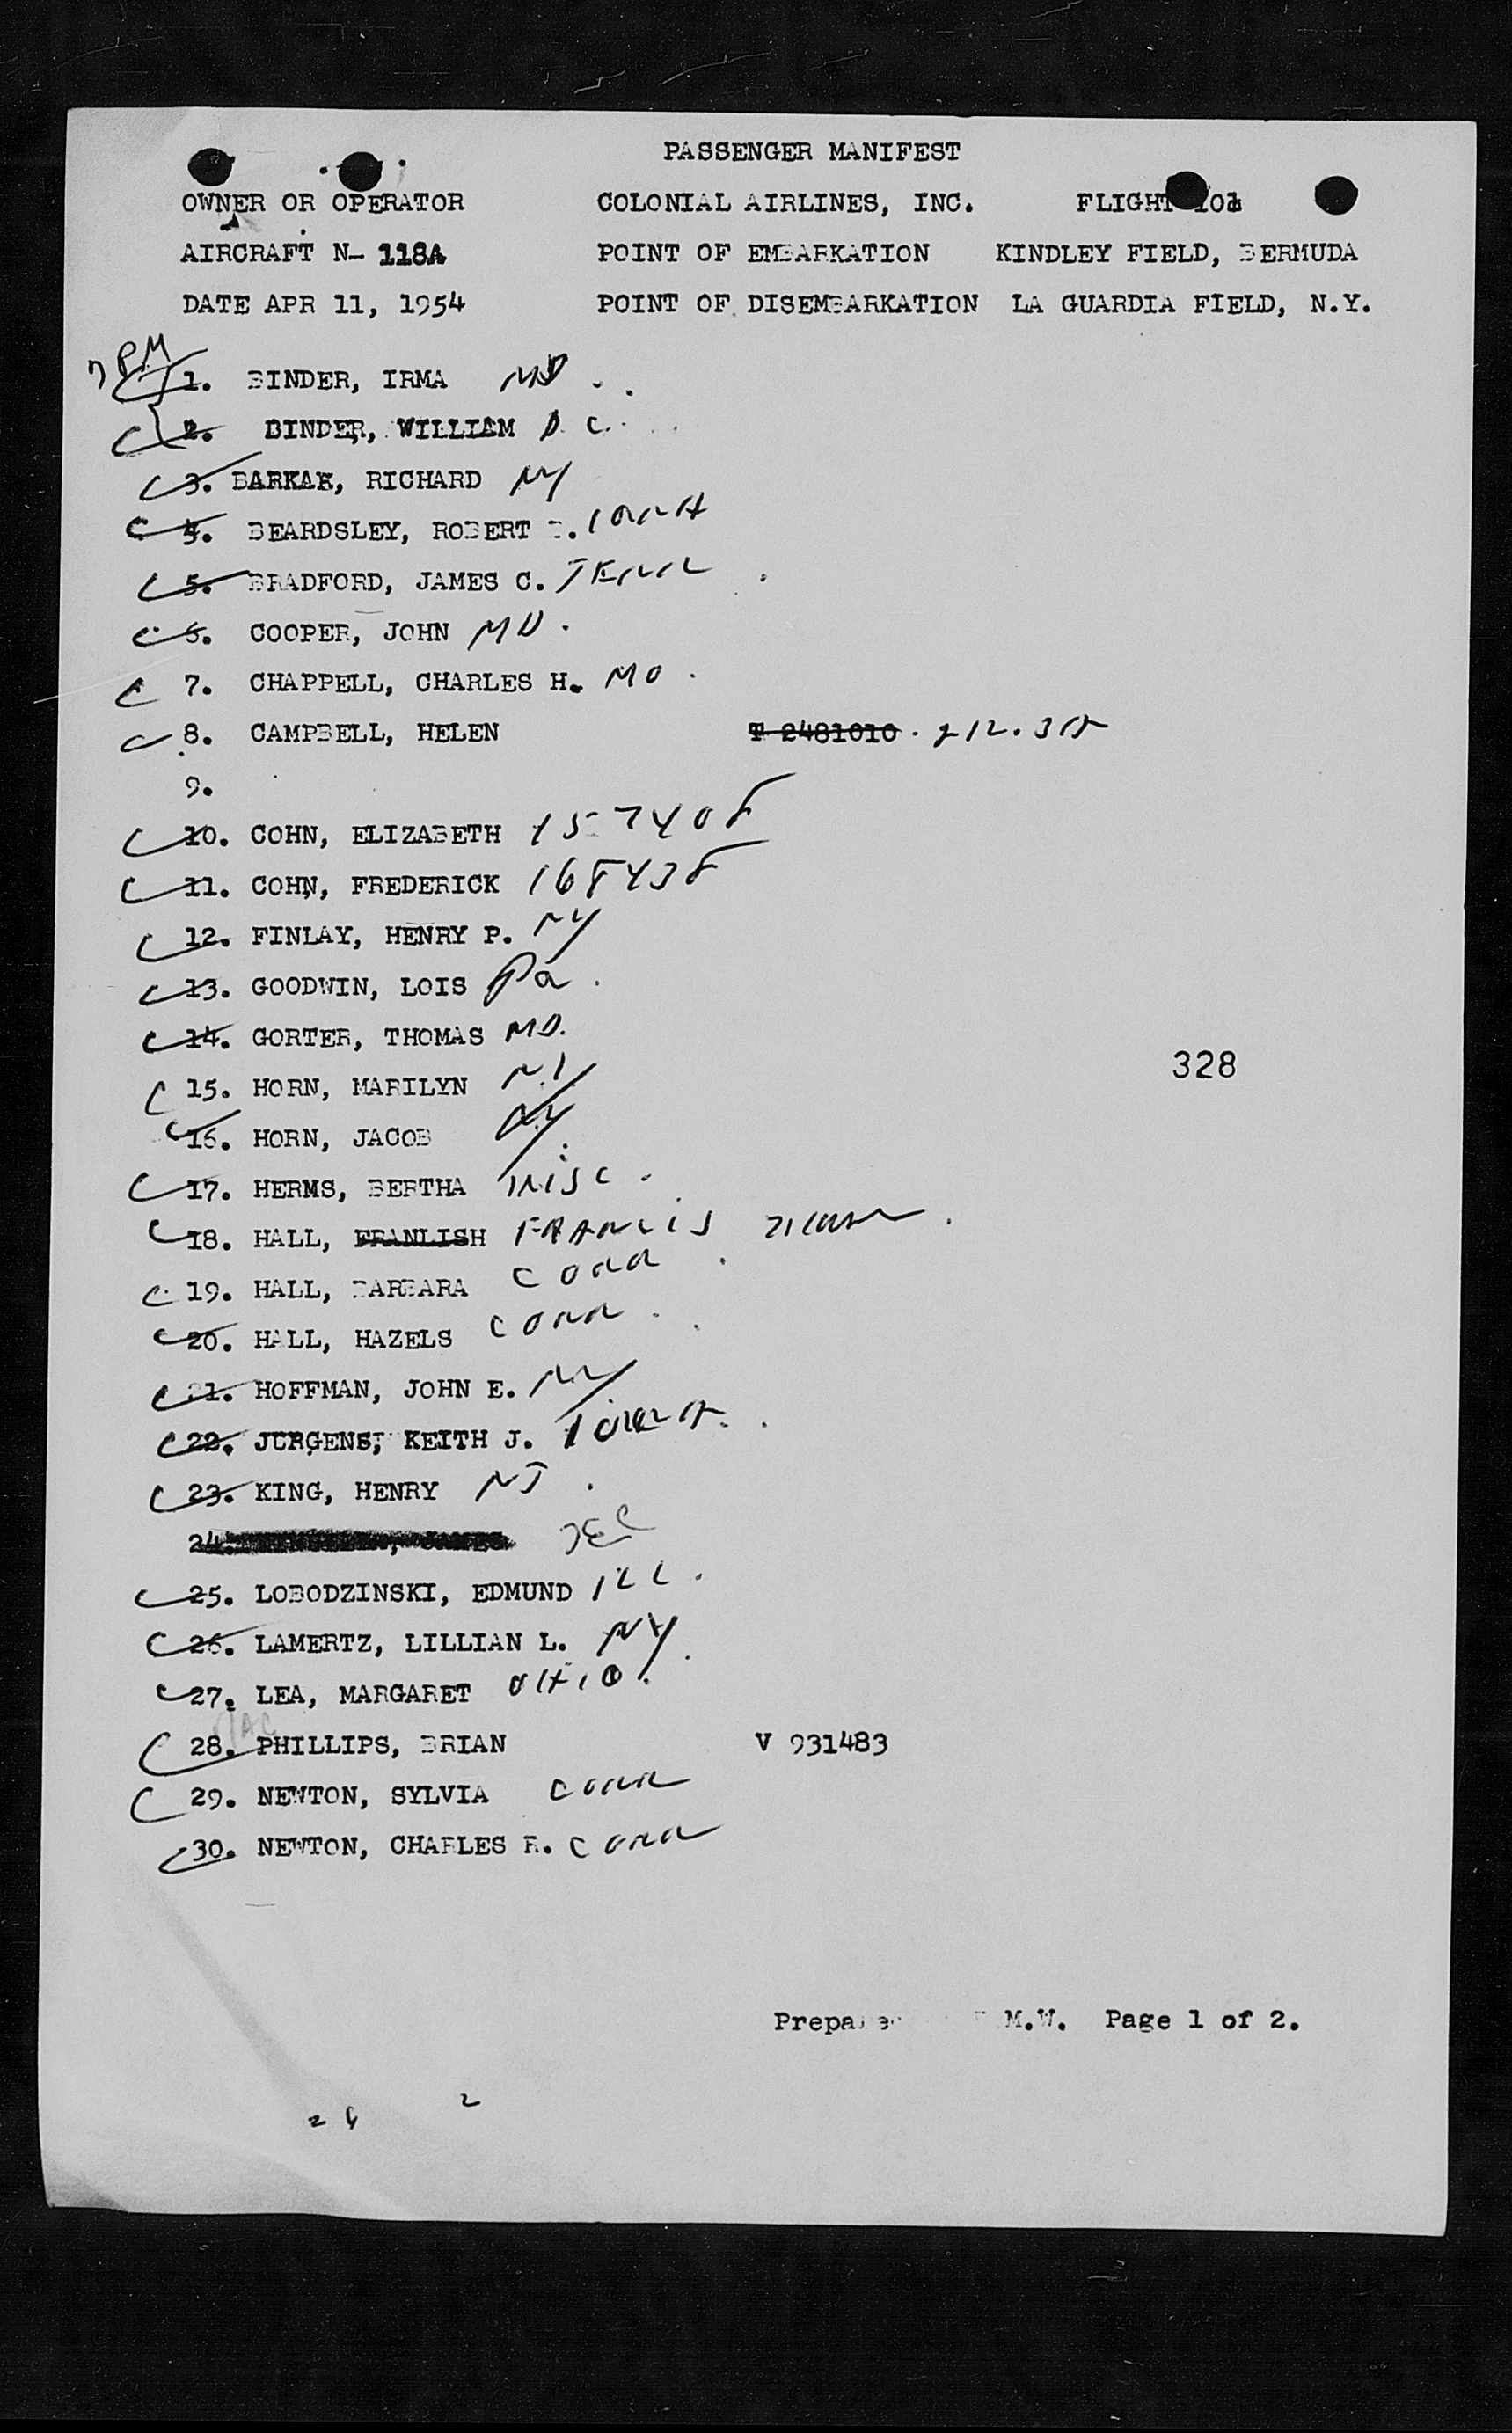 PASSENGER MANIFEST
OWNER OR OPERATOR COLONIAL AIRLINES, INC. FLIGHT 101
AIRCRAFT N- 118A POINT OF EMBARKATION KINDLEY FIELD, BERMUDA
DATE APR 11, 1954 POINT OF DISEMBARKATION LA GUARDIA FIELD, N.Y.
7 PM
1. BINDER, IRMA MD
2. BINDER, WILLIAM D C
3. BARKAK, RICHARD NY
4. BEARDSLEY, ROBERT
5. BRADFORD, JAMES C. TENN
6. COOPER, JOHN MD.
7. CHAPPELL, CHARLES H. MO
8. CAMPBELL, HELEN T 2481010
9.
10. COHN, ELIZABETH
11. COHN, FREDERICK
12. FINLAY, HENRY P. NY
13. GOODWIN, LOIS Pa
14. GORTER, THOMAS MD.
15. HORN, MARILYN N.Y
16. HORN, JACOB NY
17. HERMS, BERTHA
18. HALL, FRANLISH FRANCIS
19. HALL, BARBARA CONN
20. HALL, HAZELS CONN
21. HOFFMAN, JOHN E. NY
22. JURGENS, KEITH J.
23. KING, HENRY NJ
24.
25. LOBODZINSKI, EDMUND ILL.
26. LAMERTZ, LILLIAN L. NY
27. LEA, MARGARET OHIO.
28. PHILLIPS, BRIAN V 931483
29. NEWTON, SYLVIA CONN
30. NEWTON, CHARLES R. CONN
328
M.W. Page 1 of 2.
2